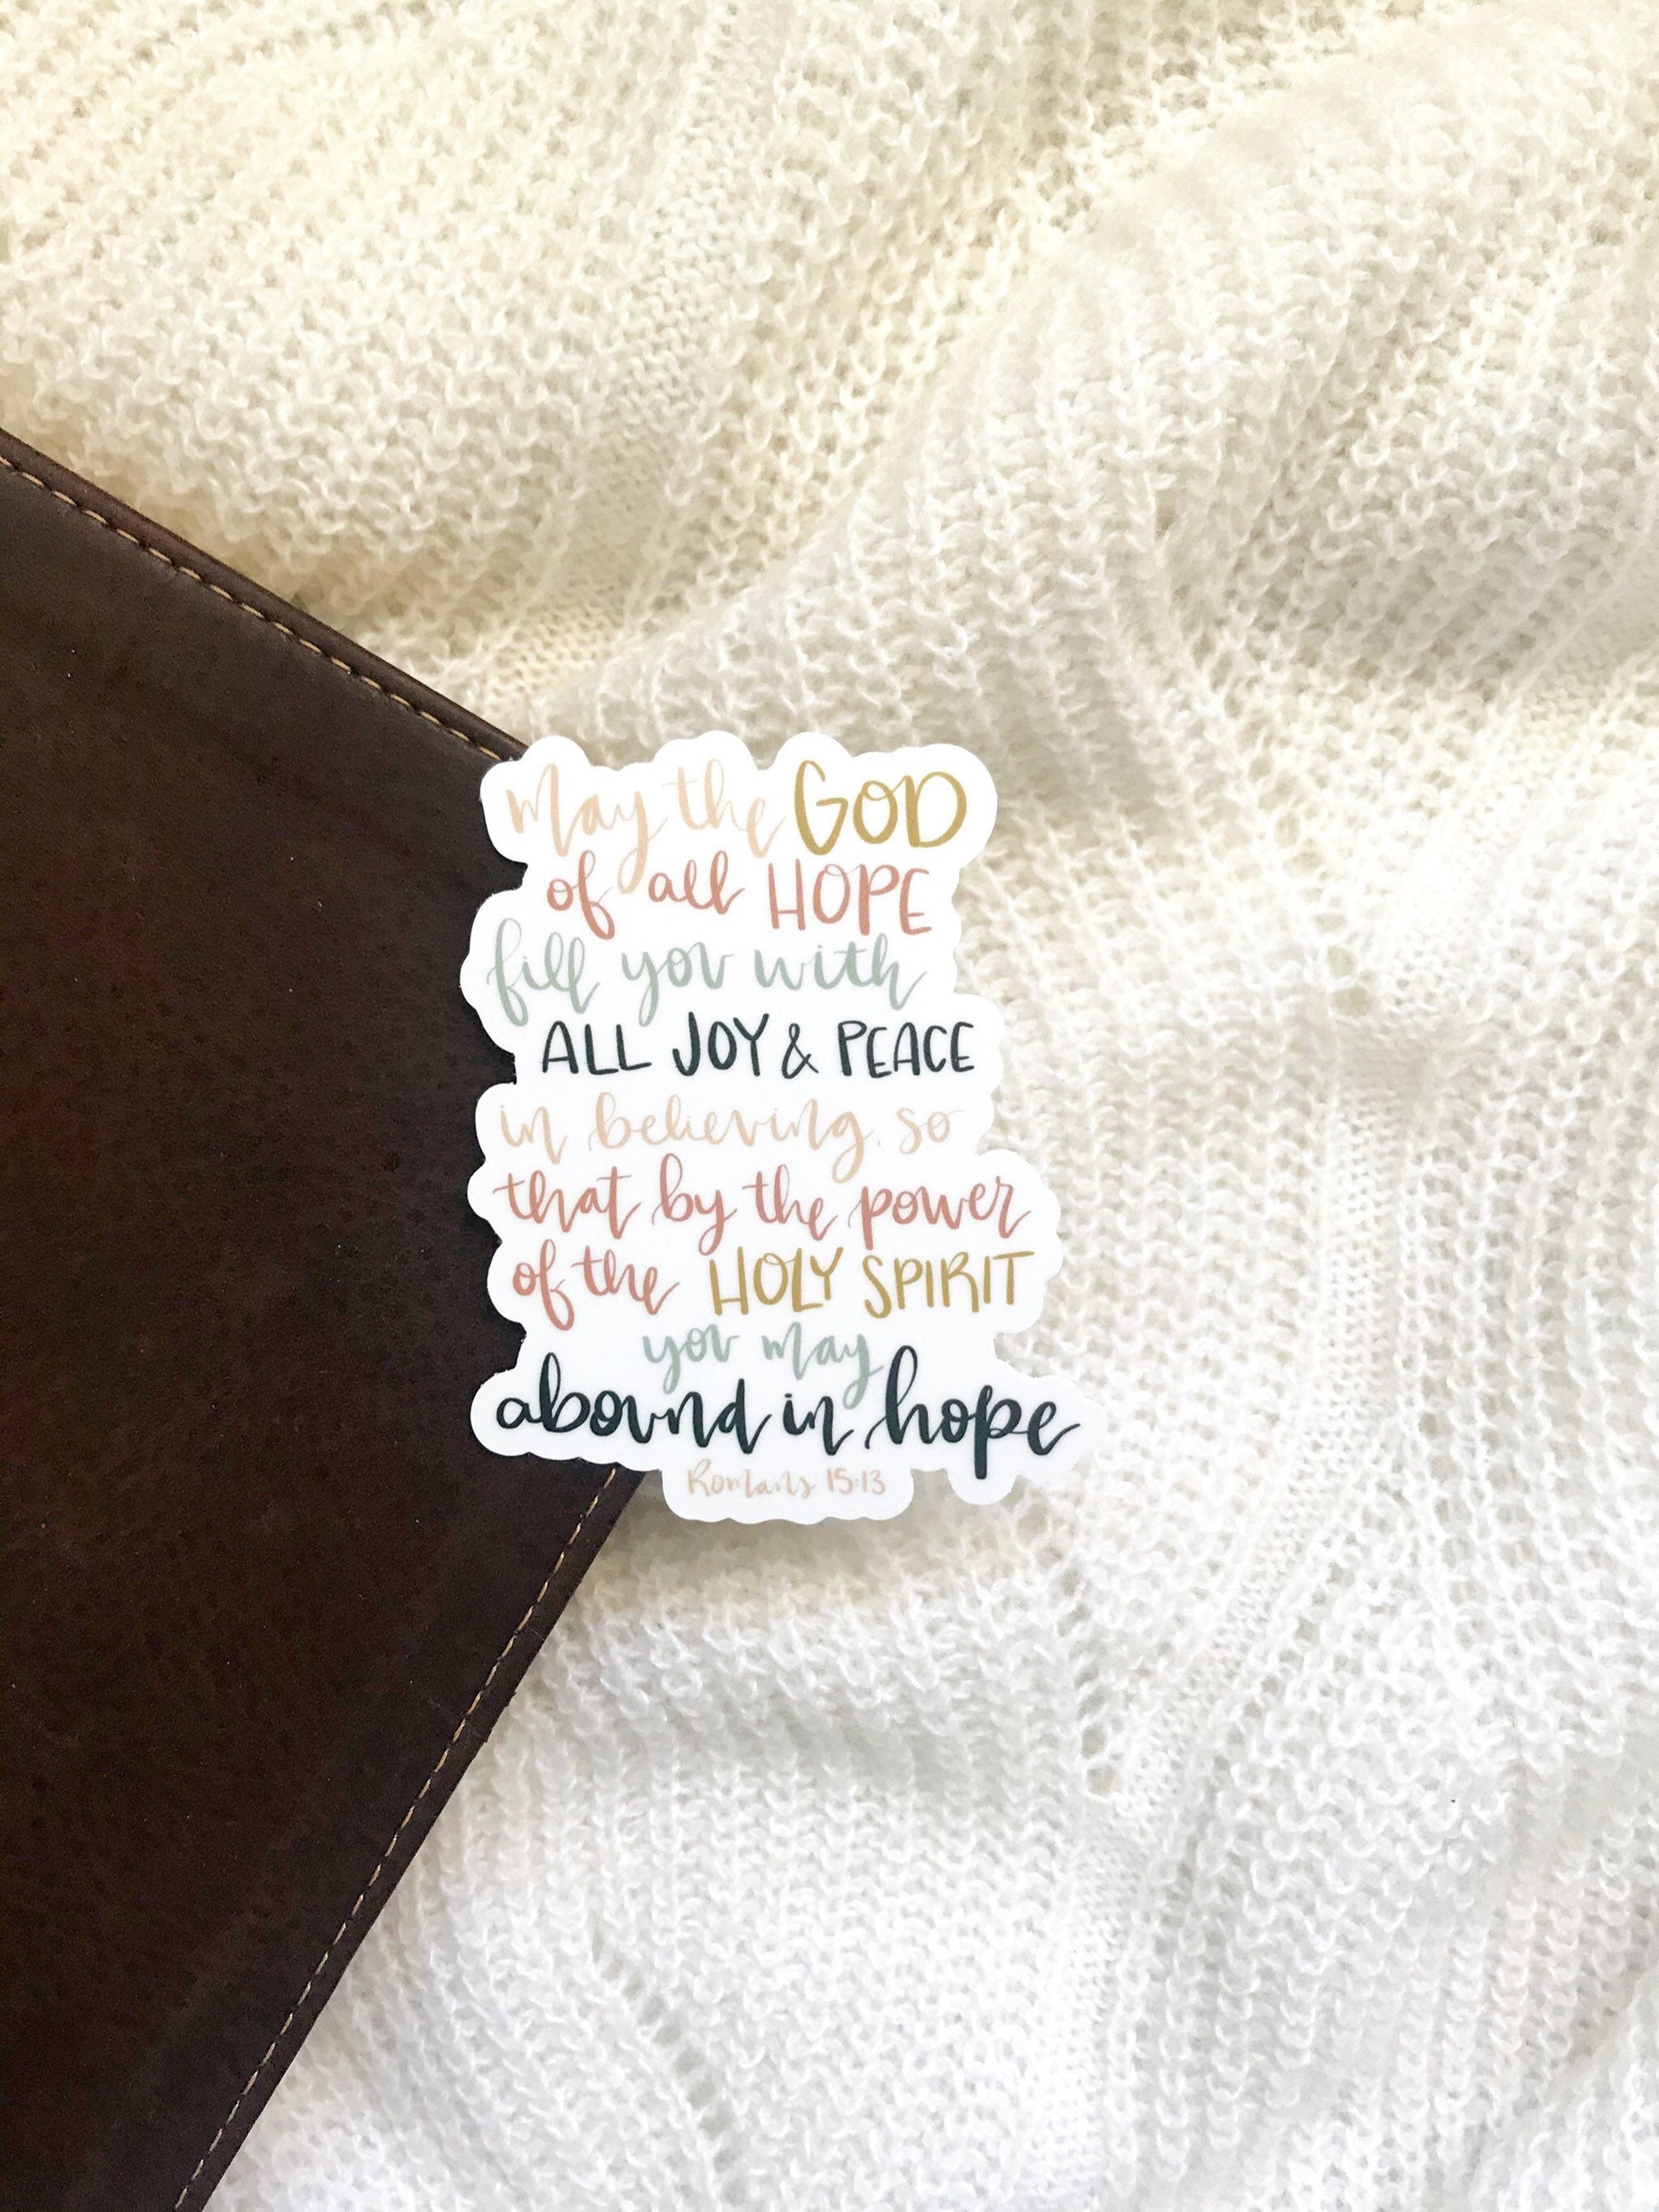 May the GOD
of all HOPE
fill you with
ALL JOY & PEACE
in believing, so
that by the power
of the HOLY SPIRIT
you may
abound in hope
Romans 15:13